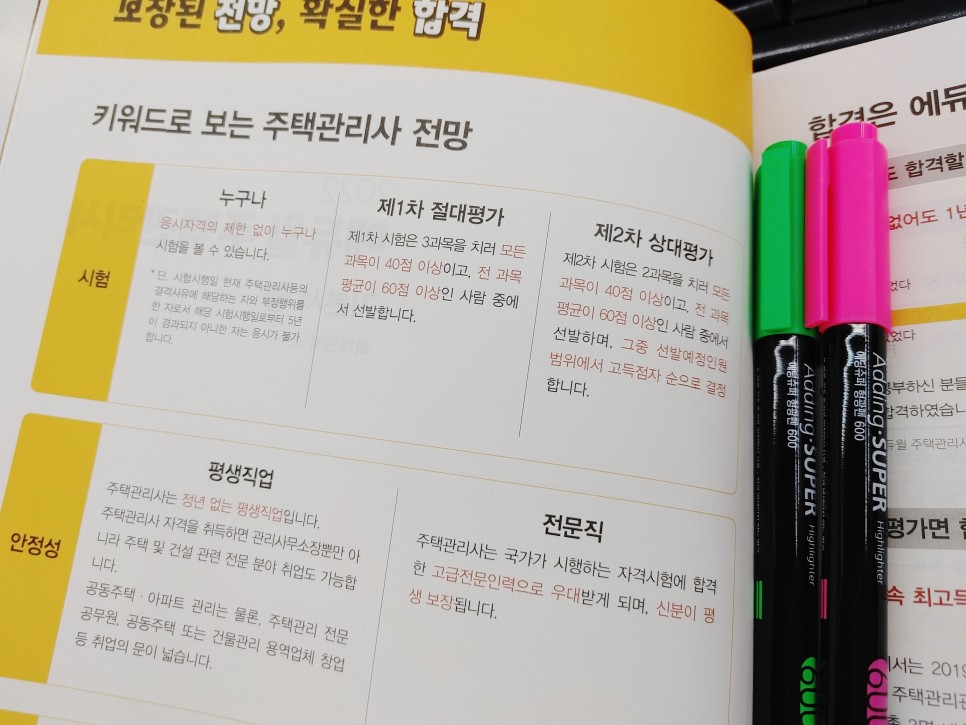 보장된 전망, 확실한 합격
키워드로 보는 주택관리사 전망
시험
누구나
응시자격의 제한 없이 누구나
시험을 볼 수 있습니다.
* 단, 시험시행일 현재 주택관리사등의
결격사유에 해당하는 자와 부정행위를
한 자로서 해당 시험시행일로부터 5년
이 경과되지 아니한 자는 응시가 불가
합니다.
제1차 절대평가
제1차 시험은 3과목을 치러 모든
과목이 40점 이상이고, 전 과목
평균이 60점 이상인 사람 중에
서 선발합니다.
제2차 상대평가
제2차 시험은 2과목을 치러 모든
과목이 40점 이상이고, 전 과목
평균이 60점 이상인 사람 중에서
선발하며, 그중 선발예정인원
범위에서 고득점자 순으로 결정
합니다.
안정성
평생직업
주택관리사는 정년 없는 평생직업입니다.
주택관리사 자격을 취득하면 관리사무소장뿐만 아
니라 주택 및 건설 관련 전문 분야 취업도 가능합
니다.
공동주택 · 아파트 관리는 물론, 주택관리 전문
공무원, 공동주택 또는 건물관리 용역업체 창업
등 취업의 문이 넓습니다.
전문직
주택관리사는 국가가 시행하는 자격시험에 합격
한 고급전문인력으로 우대받게 되며, 신분이 평
생 보장됩니다.
합격은 에듀
도 합격할
없어도 1년
없다
부하신 분들
합격하였습니
듀윌 주택관리사
평가면 합
속 최고득
에서는 2019
주택관리관
Adding·SUPER Highlighter
에딩슈퍼 형광펜 600
600
Adding·SUPER Highlighter
에딩슈퍼 형광펜 600
600